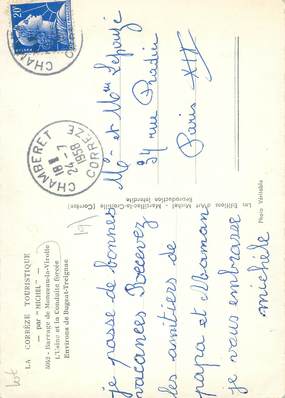 LA CORRÈZE TOURISTIQUE
— par "MICHEL" —
5052 - Barrage de Monceau-la-Virolle
L'Usine et la Conduite forcée
Environs de Bugeat-Treignac
je passe de bonnes
vacances Recevez
les amitiés de
papa et Maman
je vous embrasse
michèle
Les Editions d'Art Michel - Marcillac-la-Croisille (Corrèze)
Reproduction Interdite
Photo Véritable
Mr et Mme Lepouzé
34 rue
Paris XII
CHAMBERET
18 H
24 - 7
1958
CORRÈZE
20F
CHAMB
lot